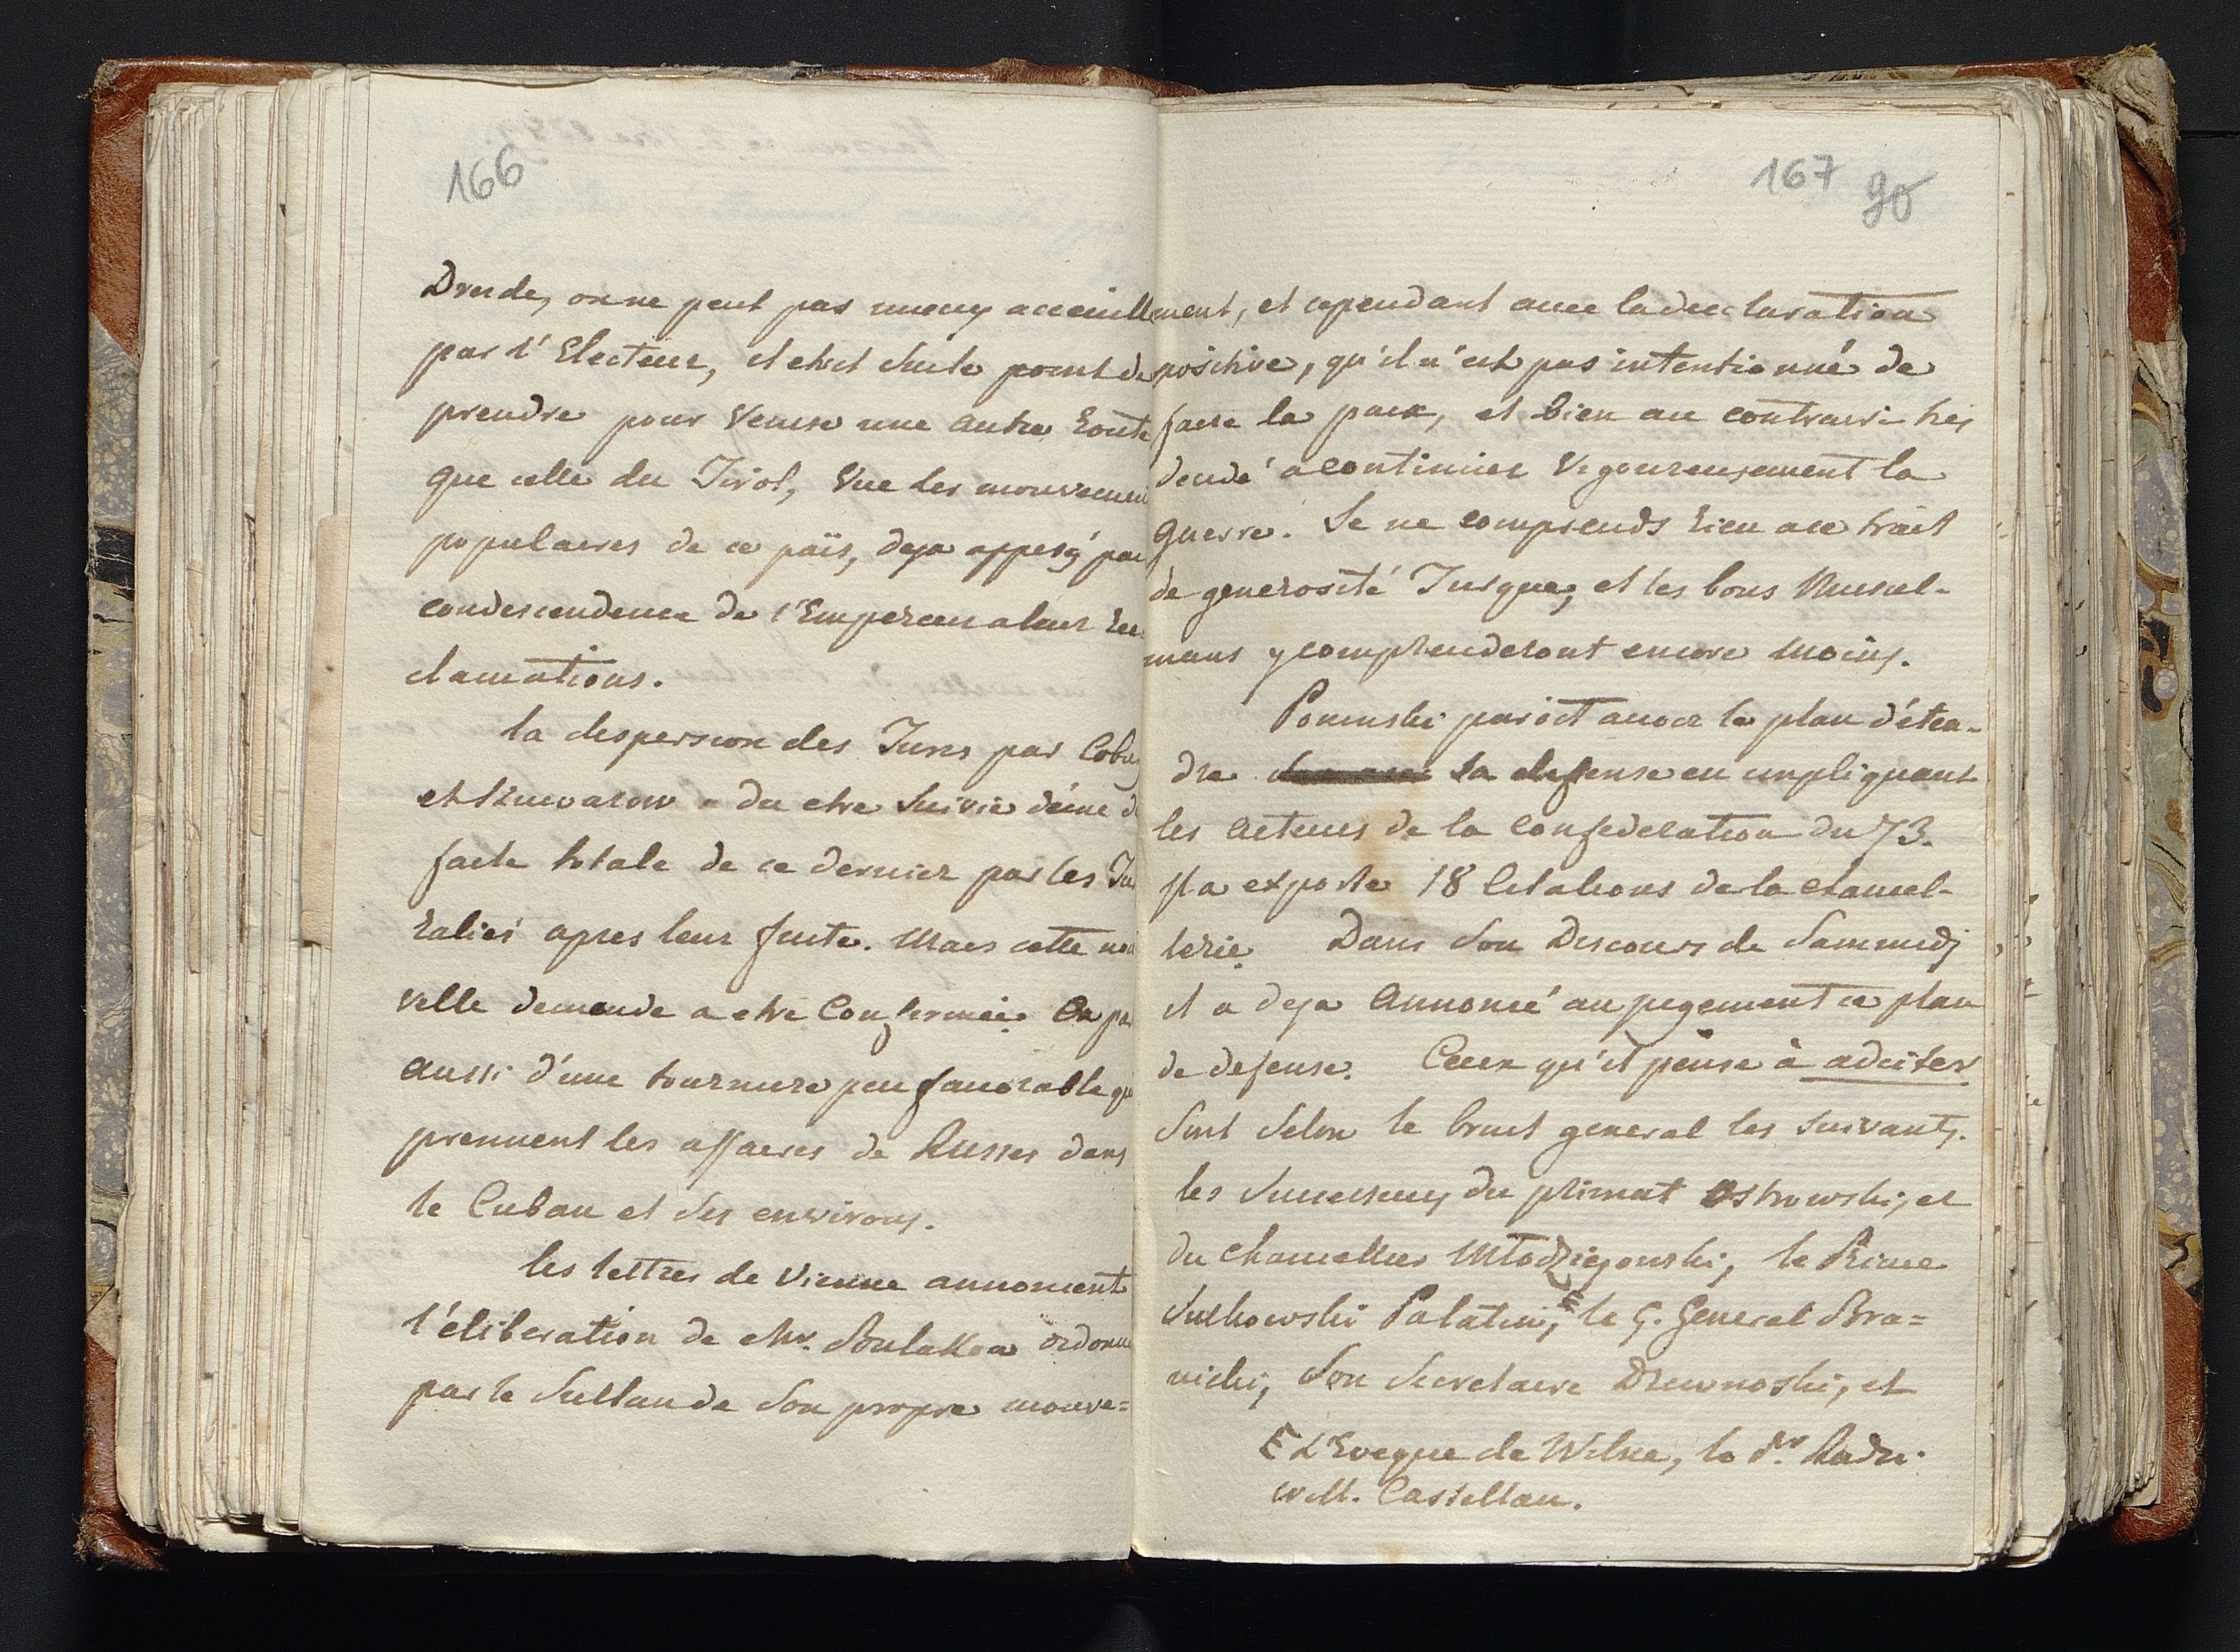 166
Dresde, on ne peut pas mieux acceuille
par l'Electeur, et etoit sur le point de
prendre pour Venise une autre Route
que celle du Tirol, Vue les mouvemen
populaires de ce païs, deja appesé par
condescendence de l'Empereur a leur Re-
clamations.
la dispersion des Turcs par Cobu
et Szuwarow a du etre Suivie d'une d
faite totale de ce dernier par les Tu
Raliés apres leur fuite. Mais cette nou
velle demande a etre Confirmée. On pa
aussi d'une tournure peu favorable qu
prennent les affaires de Russes dans
le Cuban et Ses environs.
les lettres de Vienne annoncent
l'éliberation de Mr. Bulakow ordonn
par le Sultan de Son propre mouve=
167 90
ment, et cependant avec la declaration
positive, qu'il n'est pas intentionné de
faire la paix, et bien au contraire tres
decidé a continuer Vigoureusement la
guerre. Je ne comprends Rien a ce trait
de generosité Turque, et les bons Musul-
mans y comprenderont encore moins.
Poninski paroit avoir le plan d'éten-
dre sa defense en impliquant
les acteurs de la confederation du 73.
Il a exporté 18 Citations de la chancel-
lerie. Dans Son Discours de Sammedj
il a deja annoncé au jugement ce plan
de defense. Ceux qu'il pense à adciter
Sont Selon le bruit general les Suivants.
les Successeurs du primat Ostrowski, et
du chancellier Młodziejowski, le Prince
Sulkowski Palatin, le G. General Bra=
nicki, Son Secretaire Drewnoski, et
L'Eveque de Wilna, le Pr. Radzi-
will. Castellan.